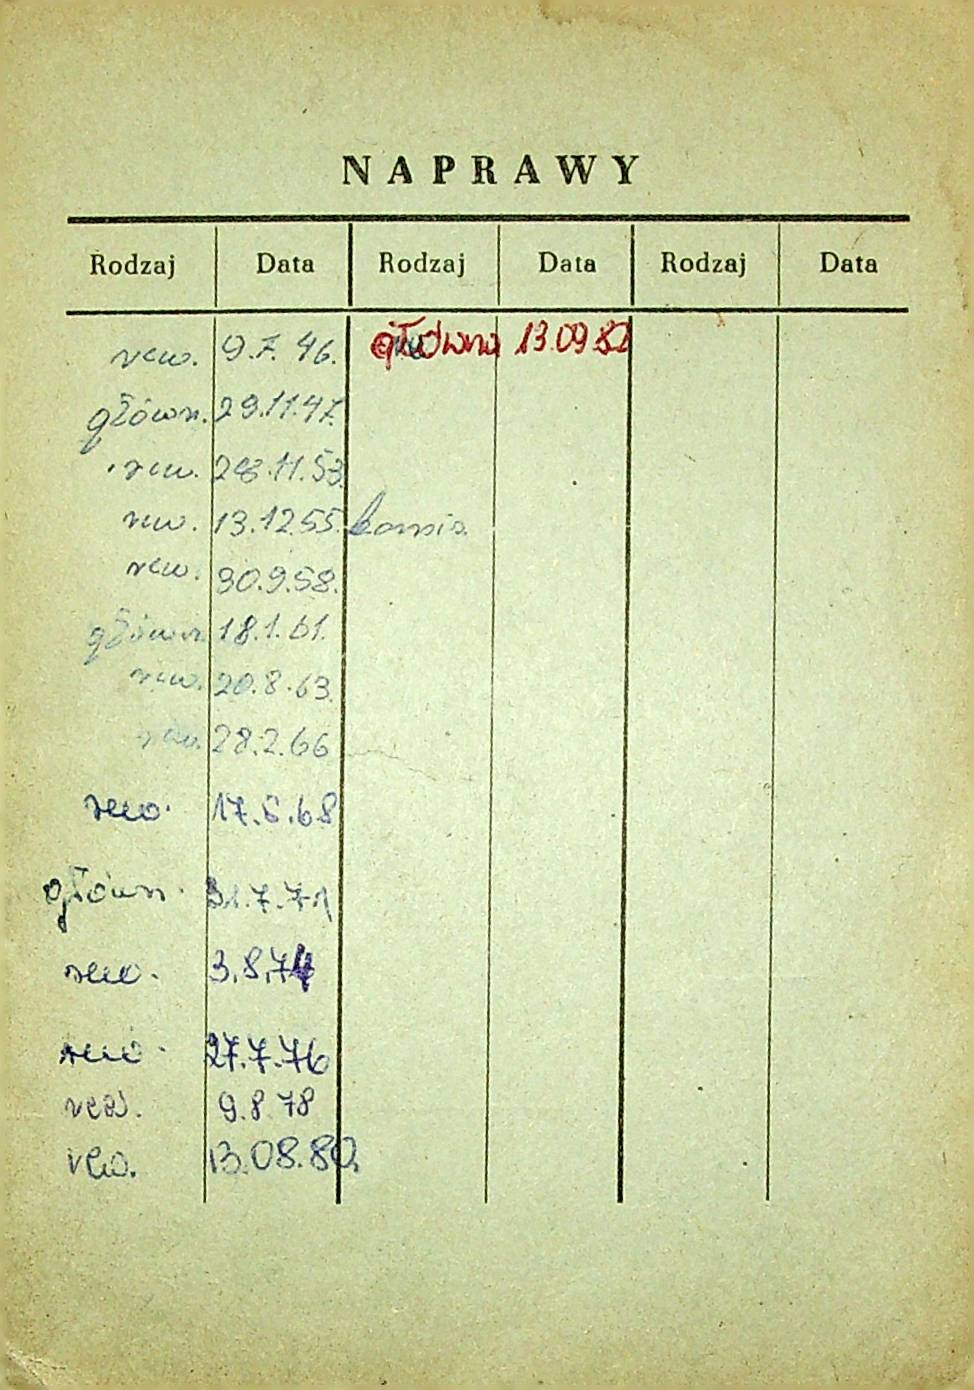 NAPRAWY
Rodzaj Data Rodzaj Data Rodzaj Data
rew. 9.7.46. główna 13.09.82
główn. 29.11.47.
rew. 28.11.53.
rew. 13.12.55.
rew. 30.9.58.
główn. 18.1.61.
rew. 20.8.63.
rew. 28.2.66
rew. 17.6.68
główn. 31.7.71
rew. 3.8.74
rew. 27.7.76
rew. 9.8.78
rew. 13.08.80.